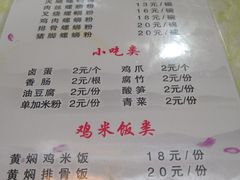 13元/碗
肉丝螺蛳粉 16元/碗
鸡爪螺蛳粉 18元/碗
排骨螺蛳粉 20元/碗
猪脚螺蛳粉 20元/碗
小吃类
卤蛋 2元/个 鸡爪 2元/个
香肠 2元/根 腐竹 2元/份
油豆腐 2元/份 酸笋 2元/份
单加米粉 2元/份 青菜 2元/份
鸡米饭类
黄焖鸡米饭 18元/份
黄焖排骨饭 20元/份